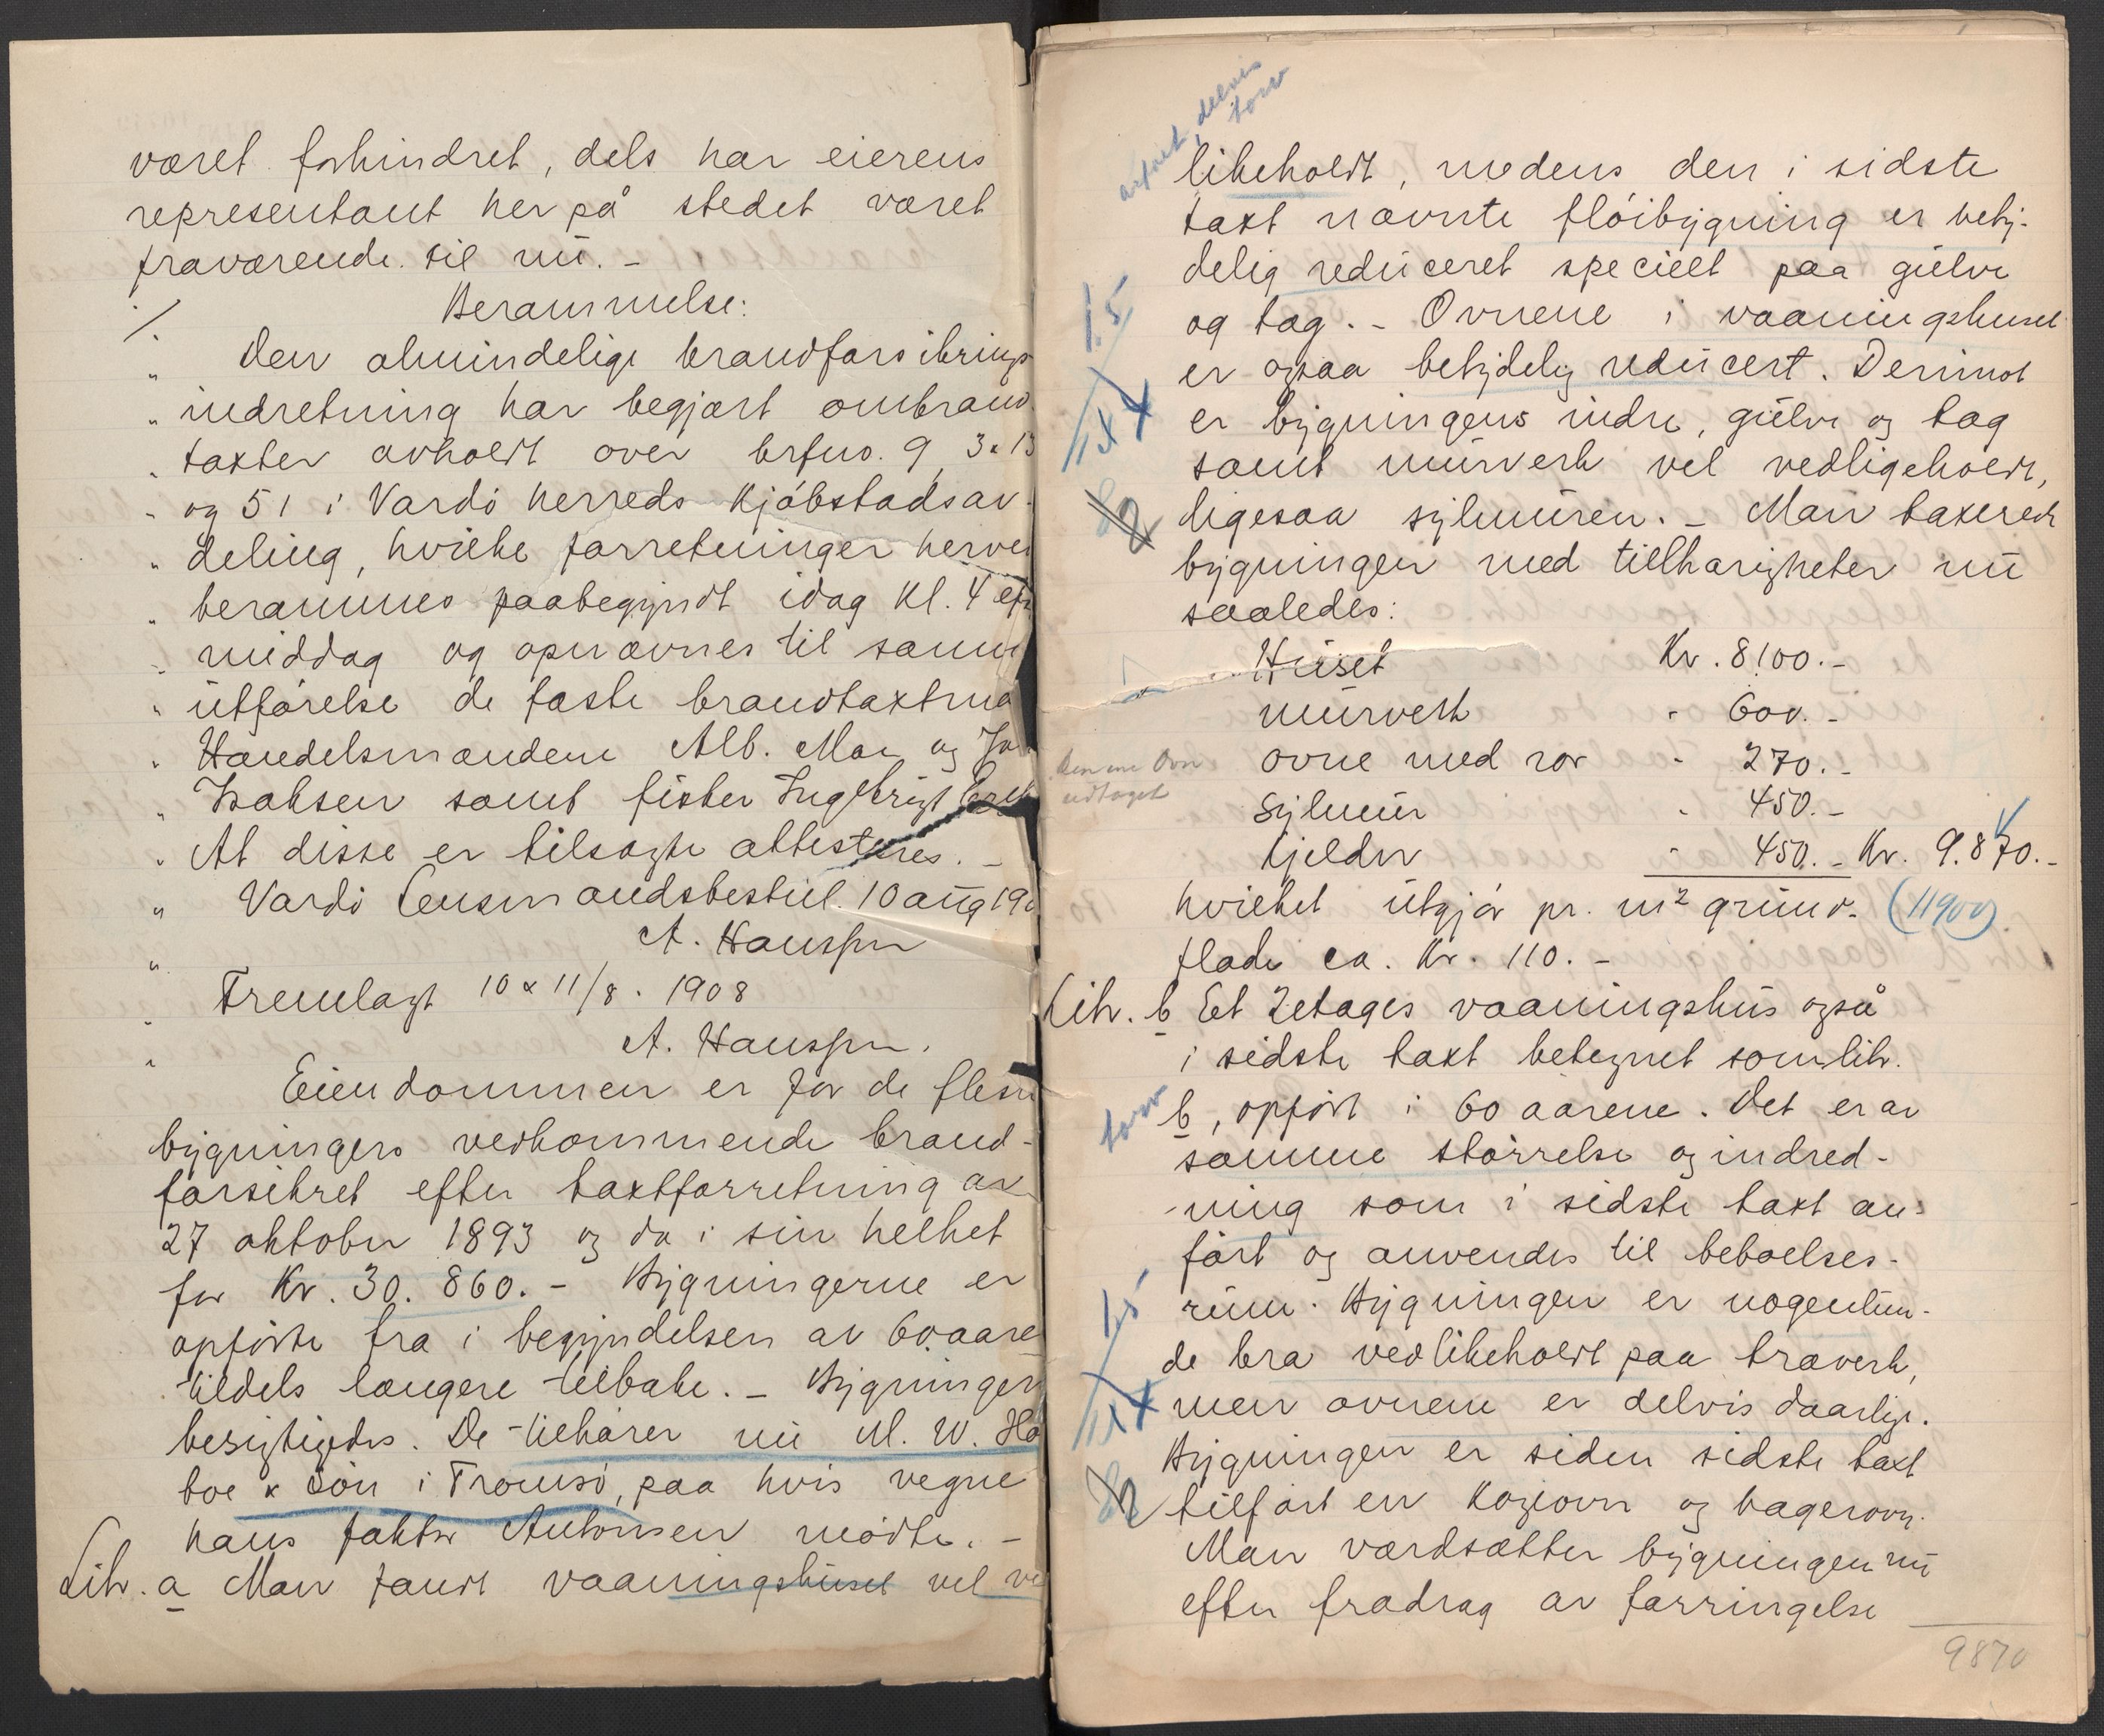 været forhindret, dels har eierens
representant her på stedet været
fraværende til nu. -
Berammelse:
./.
" Den almindelige brandforsikrings
" indretning har begjært ombrand
" taxter avholdt over brfno. 9, 3 & 13
" og 51 i Vardö herreds kjöbstadsav-
" deling, hvilke forretninger herved
" berammes paabegyndt idag Kl. 4 efter
" middag og opnævnes til samme
" utförelse de faste brandtaxtmænd
" Handelsmændene Alb. Moe og
" Isaksen samt fisker Ingebrigt
" At disse er tilsagte attesteres. -
" Vardö lensmandsbestil. 10 aug 190
" A. Hanssen
" Fremlagt 10 & 11/8. 1908
" A. Hanssen.
Eiendommen er for de fleste
bygningers vedkommende brand-
forsikret efter taxtforretning av
27 oktober 1893 og da i sin helhet
for Kr. 30.860. - Bygningerne er
opförte fra i begyndelsen av 60 aare
tildels længere tilbake. - Bygningen
besigtigedes. De tilhörer nu M. W. Hol
boe & Sön i Tromsö, paa hvis vegne
hans faktor Antonsen mödte. -
Litr. a Man fandt vaaningshuset vel ved
anført, delvis
torv
likeholdt, medens den i sidste
taxt nævnte flöibygning er bety-
delig reduceret specielt paa gulve
og tag. - Ovnene i vaaningshuset
1.5
er ogsaa betydelig reducert. Derimot
er bygningens indre, gulve og tag
samt murverk vel vedligeholdt,
ligesaa sylmuren. - Man taxerer
2
bygningen med tilhørigheter nu
saaledes:
Huset Kr. 8100. -
Murverk " 600. -
Den ene Ovn
udtaget
ovne med rör " 270. -
Sylmur " 450. -
Kjelder " 450. - Kr. 9.870. -
hvilket utgjör pr. m² grund- (11900)
flade ca. Kr. 110. -
Litr. b Et 2etages vaaningshus også
i sidste taxt betegnet som litr.
torv
b, opfört i 60 aarene. Det er av
samme störrelse og indred-
ning som i sidste taxt an-
fört og anvendes til beboelses-
1.5
rum. Bygningen er nogenlun-
de bra vedlikeholdt paa træverk,
men ovnene er delvis daarlige.
Bygningen er siden sidste taxt
2
tilfört en kogeovn og bagerovn.
Man værdsætter bygningen nu
efter fradrag av forringelse
9870